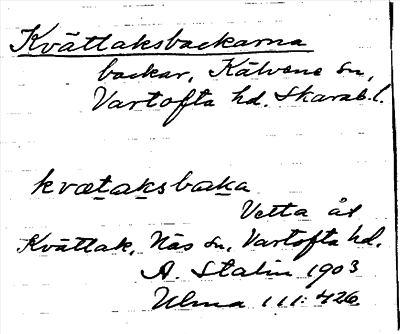 Kvättaksbackarna
backar, Kälvene sn,
Vartofta hd. Skarab.l.
kvætaksbaka
Vetta åt
Kvättak, Näs sn, Vartofta hd.
A. Stalin 1903
Ulma 111:426